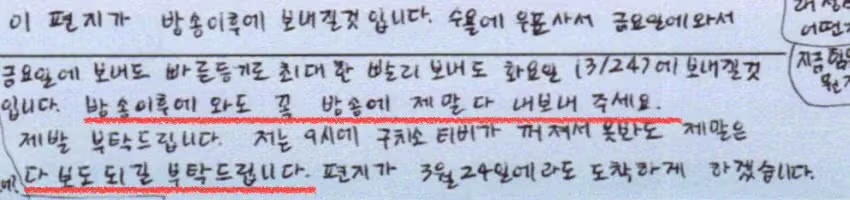 이 편지가 방송이후에 보내질것 입니다. 수욜에 우표사서 금요일에와서
금요일에 보내도 빠른등기로 최대한 빨리 보내도 화요일 (3/24)에 보내질것
입니다. 방송이후에 와도 꼭 방송에 제말 다 내보내 주세요.
제발 부탁드립니다. 저는 9시에 구치소 티비가 꺼져서 못봐도 제말은
다 보도 되길 부탁드립니다. 편지가 3월 24일에라도 도착하게 하겠습니다.
어떤
지금